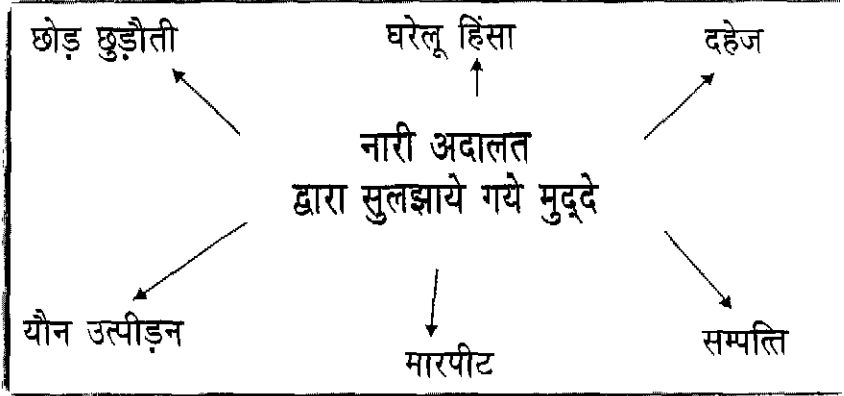 छोड़ छुड़ौती
घरेलू हिंसा
दहेज
नारी अदालत
द्वारा सुलझाये गये मुद्दे
यौन उत्पीड़न
मारपीट
सम्पत्ति